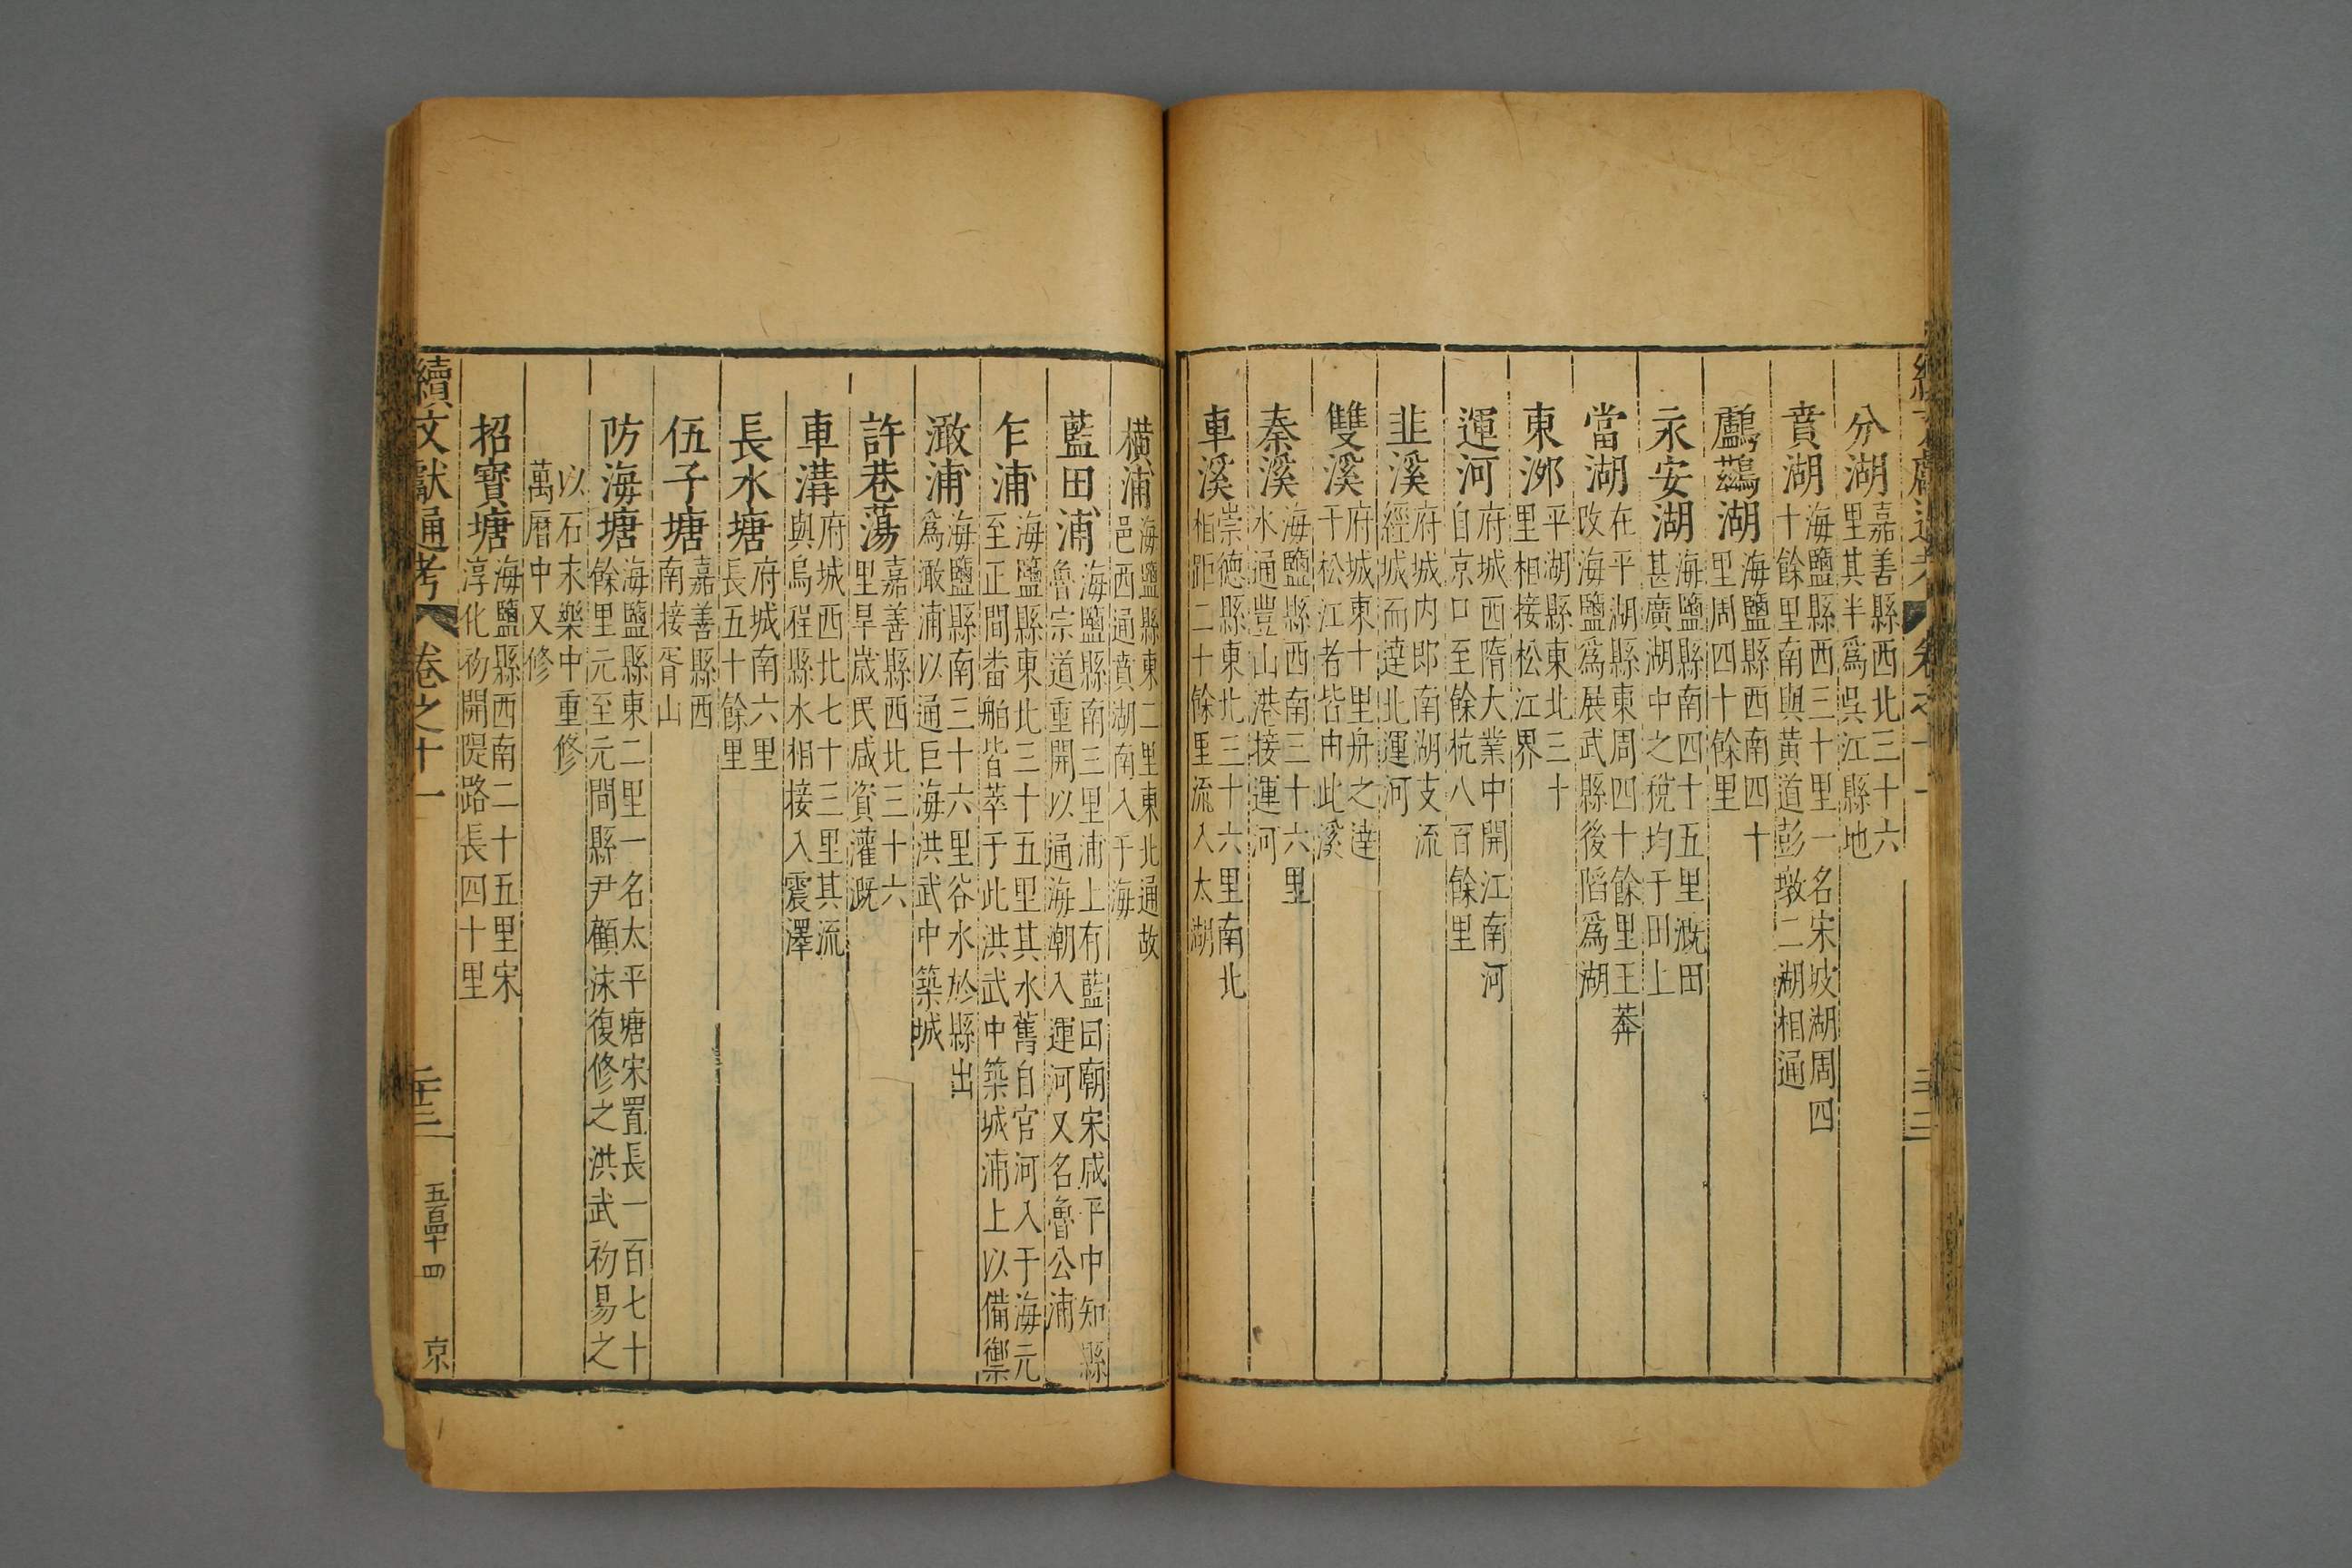 分湖嘉善縣西北三十六里其半爲吳江縣地
賁湖海鹽縣西三十里一名宋坡湖周四十餘里南與黃道彭墩二湖相通
鸕鷀湖海鹽縣西南四十里周四十餘里
永安湖海鹽縣南四十五里溉田甚廣湖中之稅均于田上
當湖在平湖縣東周四十餘里王莽改海鹽爲展武縣後陷爲湖
東泖平湖縣東北三十里相接松江界
運河府城西隋大業中開江南河自京口至餘杭八百餘里
韭溪府城內郎南湖支流經城而達北運河
雙溪府城東十里舟之達于松江者皆由此溪
秦溪海鹽縣西南三十六里水通豐山港接運河
車溪崇德縣東北三十六里南北相距二十餘里流入太湖
橫浦海鹽縣東二里東北通故邑西通賁湖南入于海
藍田浦海鹽縣南三里浦上有藍田廟宋咸平中知縣魯宗道重開以通海潮入運河又名魯公浦
乍浦海鹽縣東北三十五里其水舊自官河入于海元至正間畨舶皆萃于此洪武中築城浦上以備禦
澉浦海鹽縣南三十六里谷水於縣出爲澉浦以通巨海洪武中築城
許巷蕩嘉善縣西北三十六里旱歲民咸資灌溉
車溝府城西北七十三里其流與烏程縣水相接入震澤
長水塘府城南六里長五十餘里
伍子塘嘉善縣西南接胥山
防海塘海鹽縣東二里一名太平塘宋置長一百七十餘里元至元間縣尹顧沬復修之洪武初易之
以石末樂中重修萬曆中又修
招寶塘海鹽縣西南二十五里宋淳化初開隄路長四十里
續文獻通考 卷之十一 二十三 五百四十四 京